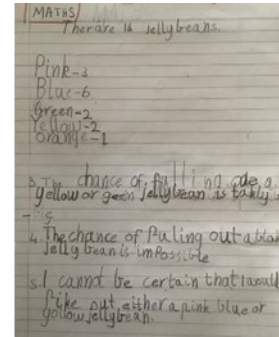 MATHS
Therare 16 jellybeans.
Pink-3
Blue-6
Green-2
Yellow-2
Orange-1
3. The chance of pulling a
yellow or geen jellybean is
4. The chance of Puling out a
Jelly bean is imPossible
5. I cannot be certain that I
Pike out either a pink blue or
yollow jellybean.